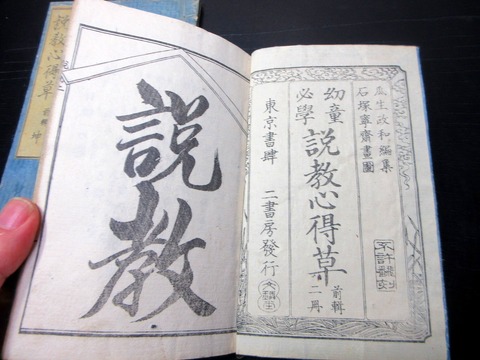 瓜生政和編集
石塚寧齋畫圖
不許翻刻
幼童
必學
說教心得草
前輯
二冊
東京書肆 二書房發行
說教
說教心得草 前輯 坤